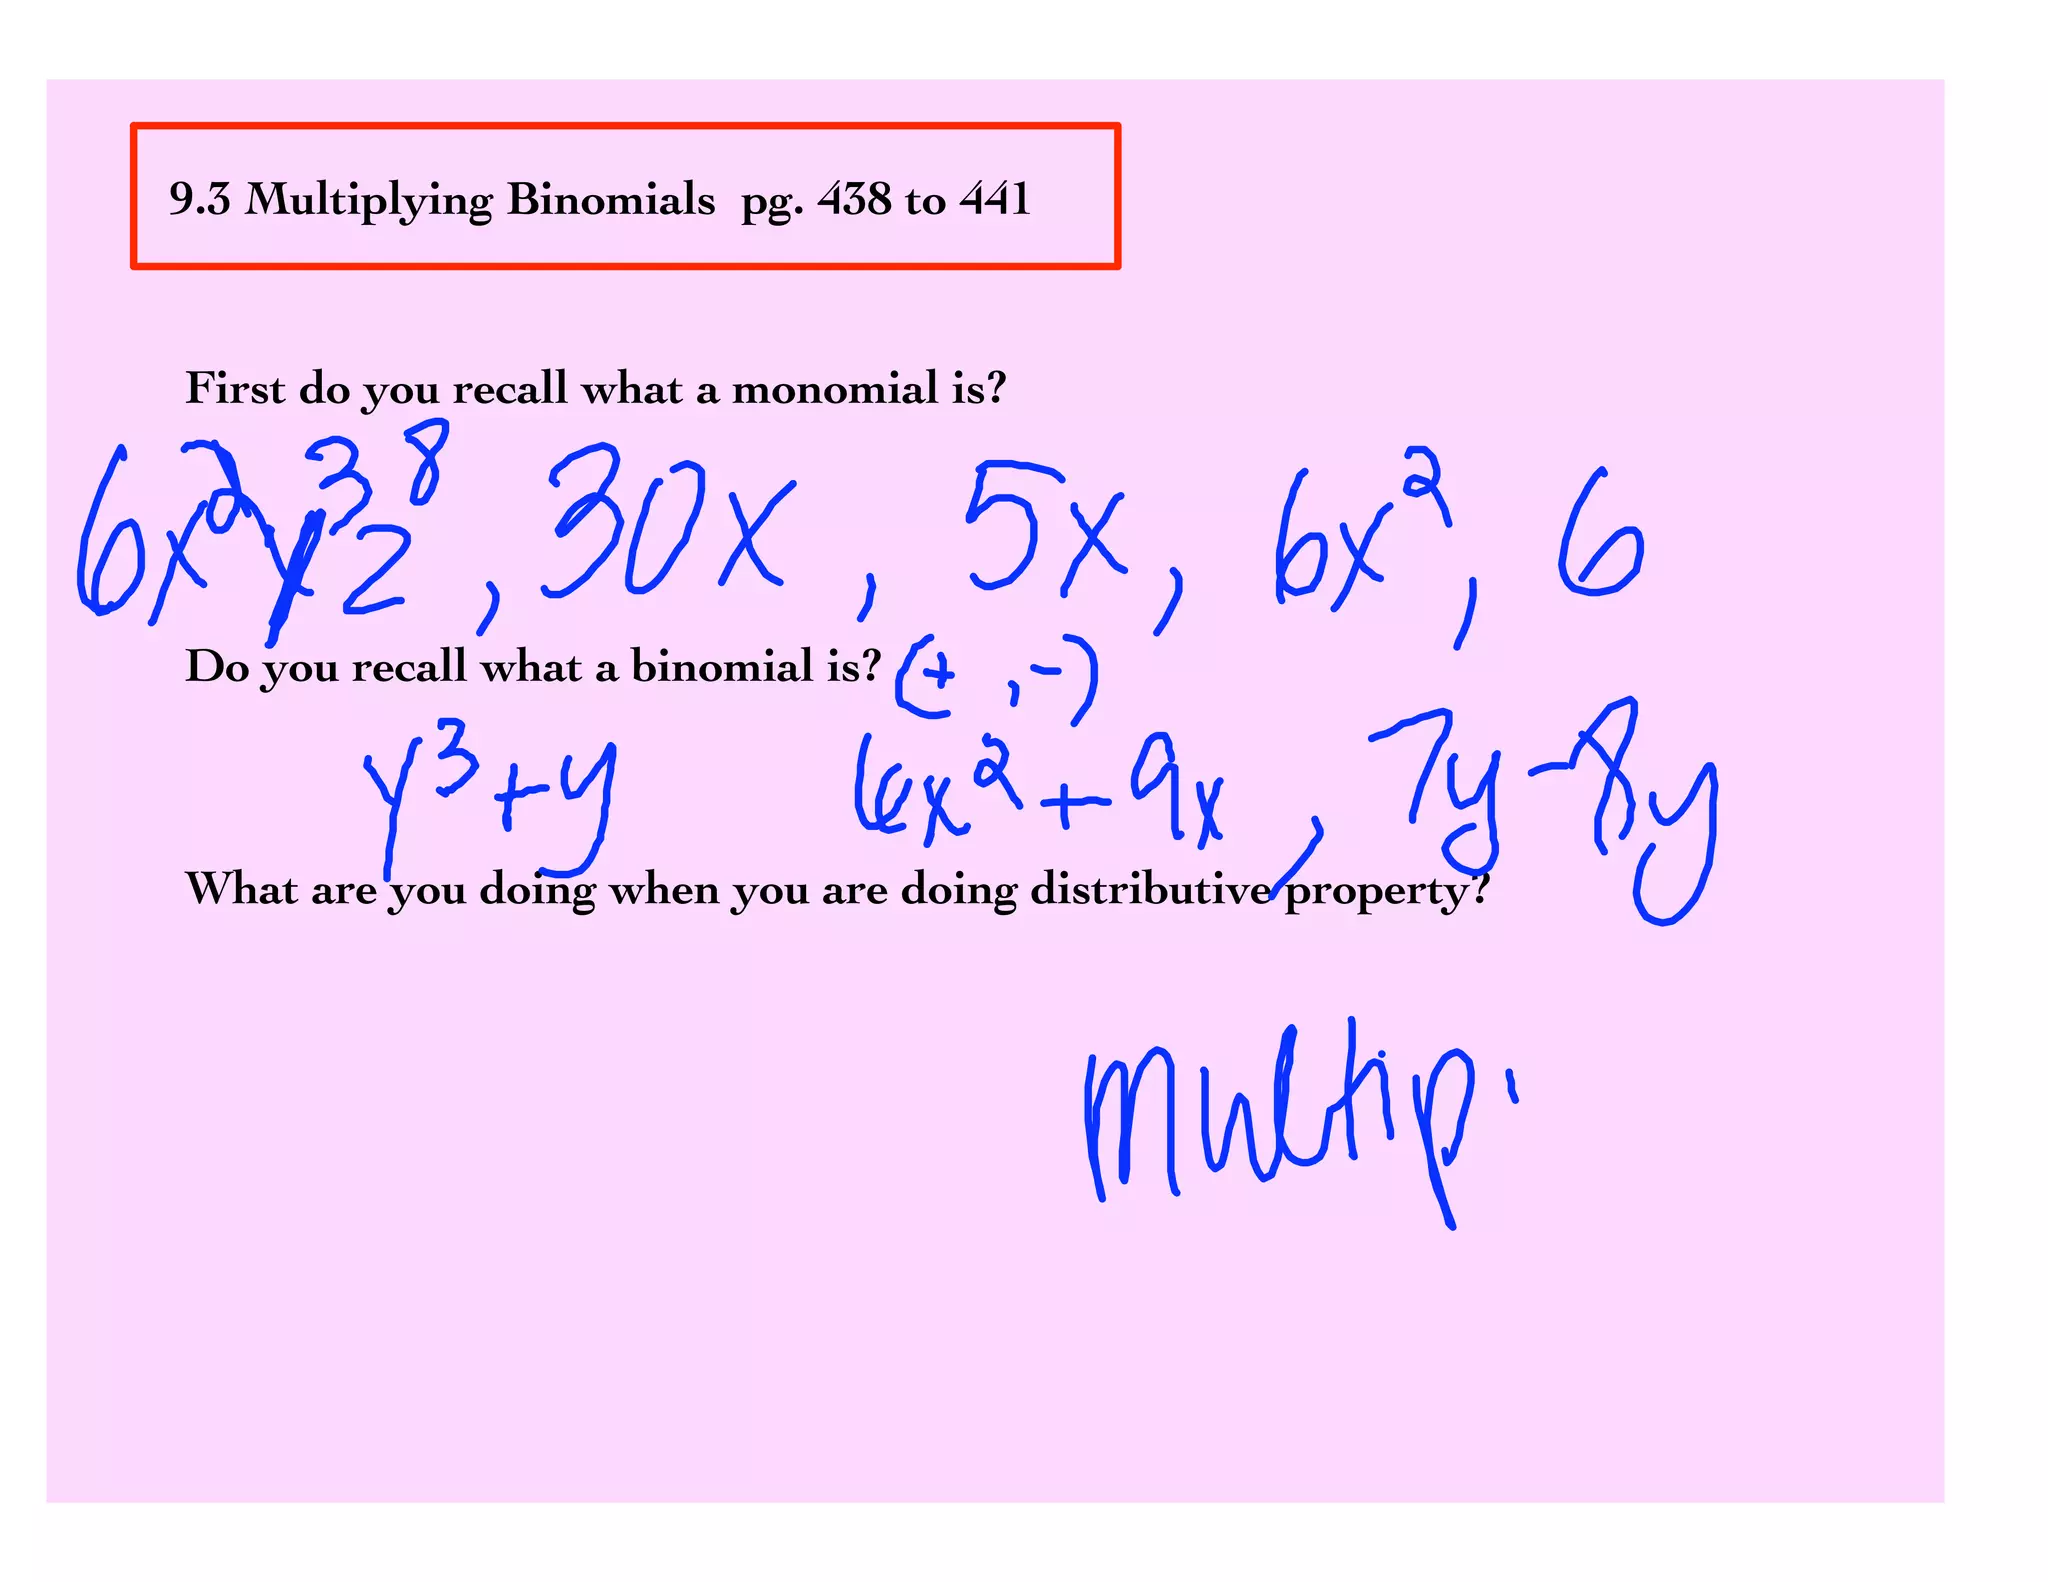 9.3 Multiplying Binomials pg. 438 to 441
First do you recall what a monomial is?
6x²y³z⁸, 30x, 5x, 6x², 6
Do you recall what a binomial is? (+,-)
y³+y 6x²+9x, 7y-8y
What are you doing when you are doing distributive property?
multip.